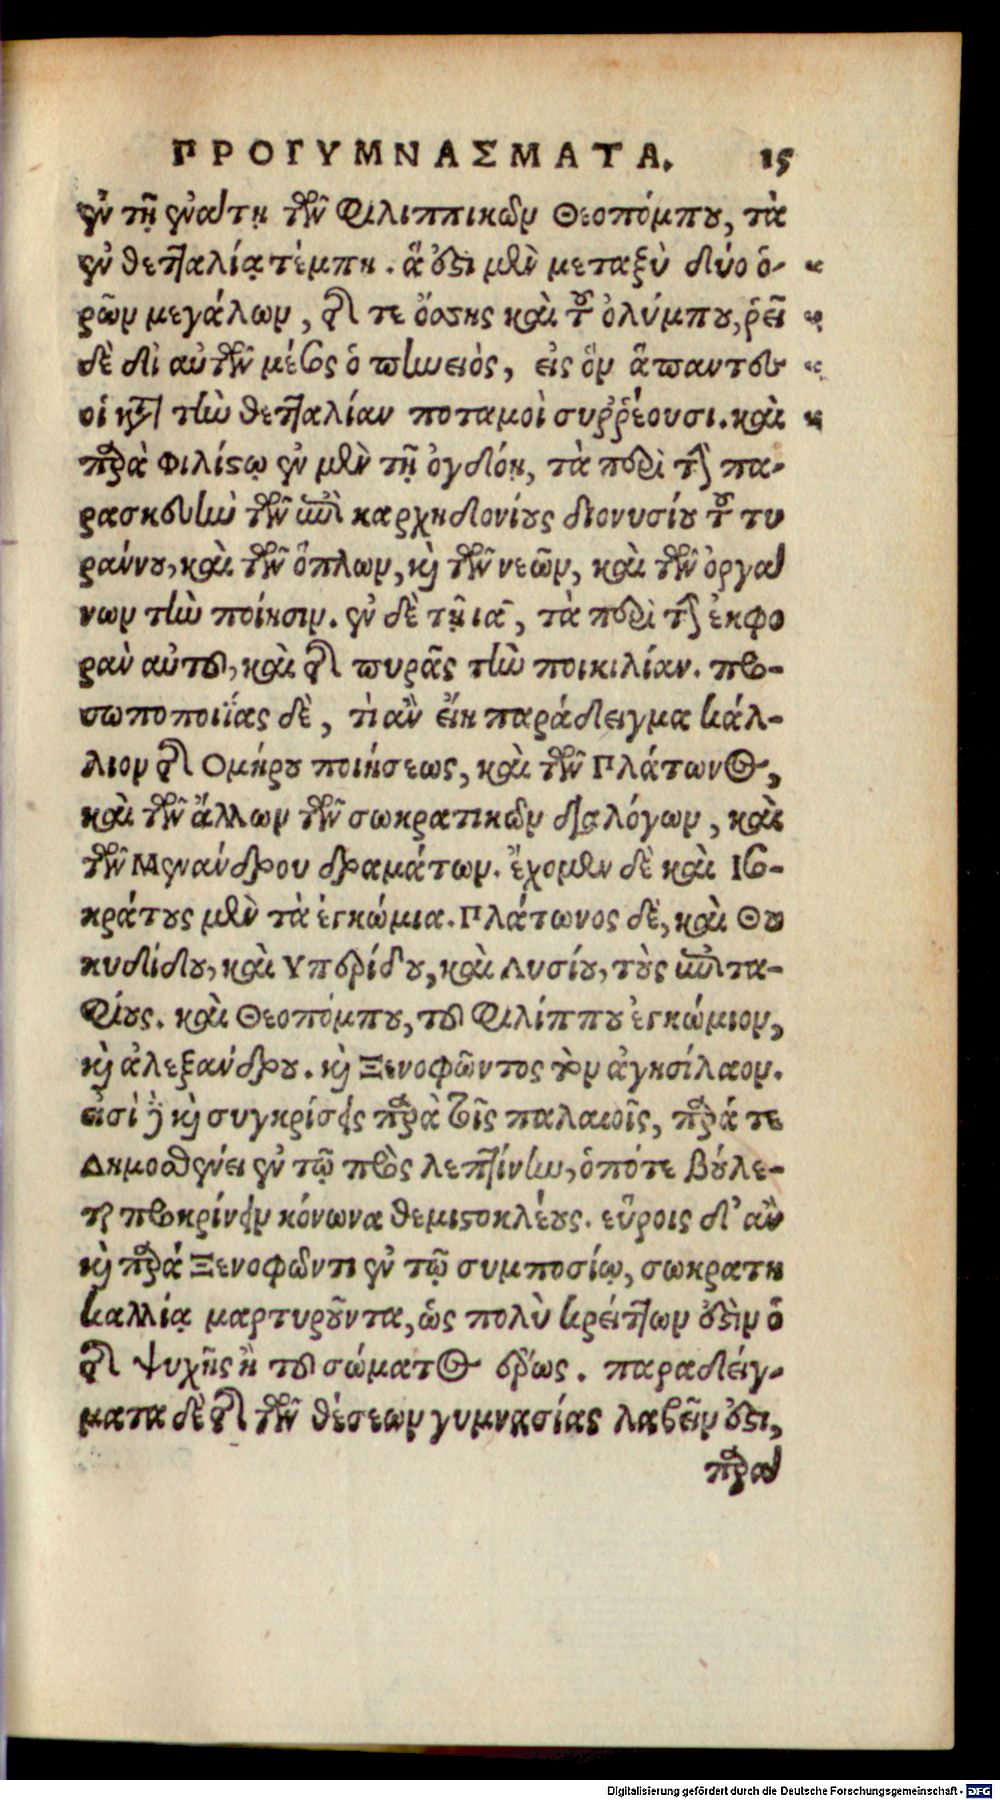 ΠΡΟΓΥΜΝΑΣΜΑΤΑ. 15
ἐν τῇ ἐνάτῃ τῶν Φιλιππικῶν Θεοπόμπου, τὰ
ἐν θετταλίᾳ τέμπη. ἅ ἐστι μὲν μεταξὺ δύο ὀ-
ρῶν μεγάλων, τῆς τε ὄσσης καὶ τοῦ ὀλύμπου, ῥεῖ
δὲ δι αὐτῶν μέσος ὁ πηνειὸς, εἰς ὃν ἅπαντες
οἱ κατὰ τὴν θετταλίαν ποταμοὶ συῤῥέουσι. καὶ
παρὰ Φιλίστῳ ἐν μὲν τῇ ὀγδόῃ, τὰ περὶ τὴν πα-
ρασκευὴν τῶν ἐπὶ καρχηδονίους διονυσίου τοῦ τυ
ράννου, καὶ τῶν ὅπλων, καὶ τῶν νεῶν, καὶ τῶν ὀργά
νων τὴν ποίησιν. ἐν δὲ τῇ ια, τὰ περὶ τὴν ἐκφο
ρὰν αὐτοῦ, καὶ τῆς πυρᾶς τὴν ποικιλίαν. προ-
σωποποιΐας δὲ, τὶ ἂν εἴη παράδειγμα κάλ-
λιον τῆς Ομήρου ποιήσεως, καὶ τῶν Πλάτωνος,
καὶ τῶν ἄλλων τῶν σωκρατικῶν διαλόγων, καὶ
τῶν Μενάνδρου δραμάτων. ἔχομεν δὲ καὶ Ισο-
κράτους μὲν τὰ ἐγκώμια. Πλάτωνος δὲ, καὶ Θου
κυδίδου, καὶ Υπερίδου, καὶ Λυσίου, τοὺς ἐπιτα-
φίους. καὶ Θεοπόμπου, τοῦ Φιλίππου ἐγκώμιον,
καὶ ἀλεξάνδρου. καὶ Ξενοφῶντος τὸν ἀγησίλαον.
εἰσὶ δὲ καὶ συγκρίσεις παρὰ τοῖς παλαιοῖς, παρά τε
Δημοσθένει ἐν τῷ πρὸς λεπτίνην, ὁπότε βούλε-
ται προκρίνειν κόνωνα θεμιστοκλέους. εὕροις δ' ἂν
καὶ παρά Ξενοφῶντι ἐν τῷ συμποσίῳ, σωκρατη
καλλίᾳ μαρτυροῦντα, ὡς πολὺ κρείττων ἐστὶν ὁ
τῆς ψυχῆς ἢ τοῦ σώματος ἔρως. παραδείγ-
ματα δὲ τῆς τῶν θέσεων γυμνασίας λαβεῖν ἐστι,
παρὰ
Digitalisierung gefördert durch die Deutsche Forschungsgemeinschaft - DFG